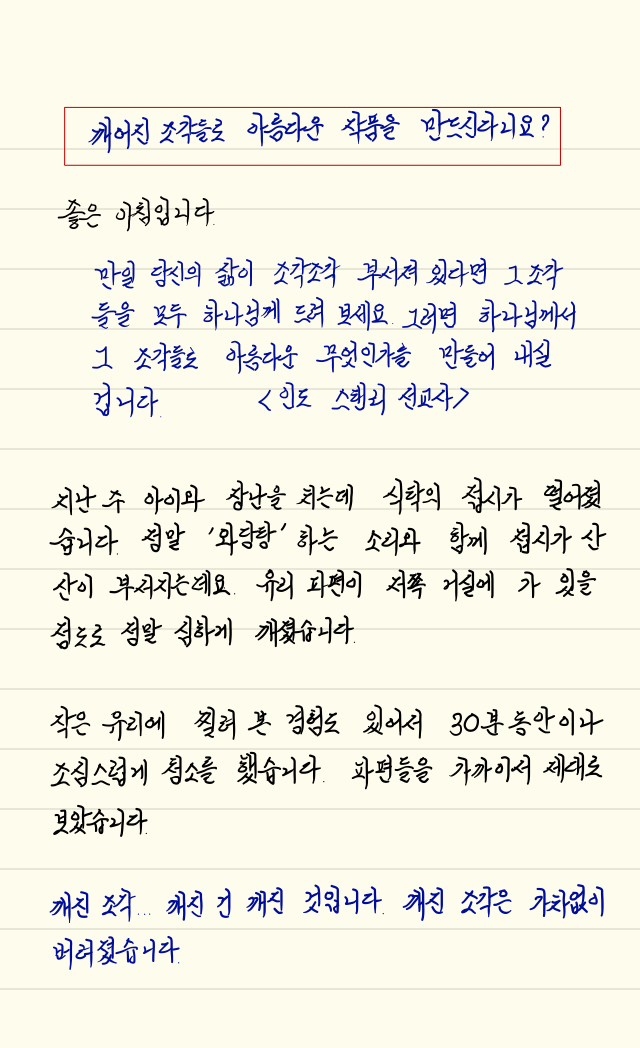 깨어진 조각들로 아름다운 작품을 만드신다니요?
좋은 아침입니다.
만일 당신의 삶이 조각조각 부서져 있다면 그 조각
들을 모두 하나님께 드려 보세요. 그러면 하나님께서
그 조각들로 아름다운 무엇인가를 만들어 내실
겁니다. <인도 스탠리 선교사>
지난 주 아이와 장난을 치는데 식탁의 접시가 떨어졌
습니다. 정말 '와당탕' 하는 소리와 함께 접시가 산
산이 부서지는데요. 유리 파편이 저쪽 거실에 가 있을
정도로 정말 심하게 깨졌습니다.
작은 유리에 찔려 본 경험도 있어서 30분 동안이나
조심스럽게 청소를 했습니다. 파편들을 가까이서 제대로
보았습니다.
깨진 조각... 깨진 건 깨진 것입니다. 깨진 조각은 가차없이
버려졌습니다.